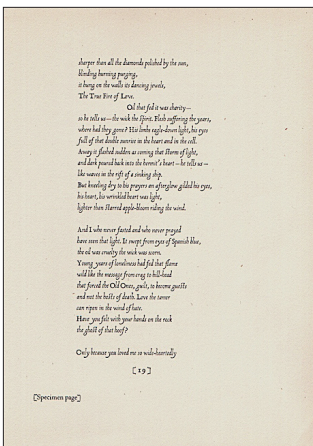 sharper than all the diamonds polished by the sun,
blinding burning purging,
it hung on the walls its dancing jewels,
The True Fire of Love.
Oil that fed it was charity—
so he tells us—the wick the Spirit. Flesh suffering the years,
where had they gone? His limbs eagle-down light, his eyes
full of that double sunrise in the heart and in the cell.
Away it flashed sudden as coming that storm of light,
and dark poured back into the hermit's heart—he tells us—
like waves in the rift of a sinking ship.
But kneeling dry to his prayers an afterglow gilded his eyes,
his heart, his wrinkled heart was light,
lighter than starred apple-bloom riding the wind.
And I who never fasted and who never prayed
have seen that light. It swept from eyes of Spanish blue,
the oil was cruelty the wick was scorn.
Young years of loneliness had fed that flame
wild like the message from crag to hill-head
that forced the Old Ones, guilt, to become guests
and not the hosts of death. Love the tamer
can ripen in the wind of hate.
Have you felt with your hands on the rock
the ghost of that hoof?
Only because you loved me so wide-heartedly
[19]
[Specimen page]